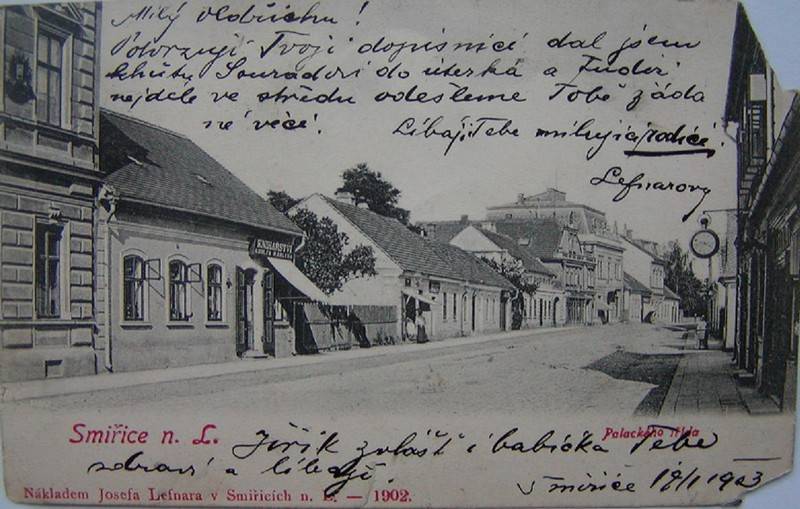 Milý Oldřichu!
Potvrzuji Tvoji dopisnici dal jsem
do úterka a
nejdéle ve středu odešleme Tobě žáda
né věci.
Líbají Tebe milující rodiče.
Lefnarovy
KNIHAŘSTVÍ
Smiřice n. L.
Palackého třída
Jiřík zvlášť i babička Tebe
zdraví a líbají.
Smiřice 1903
Nákladem Josefa Lefnara v Smiřicích n. L. — 1902.